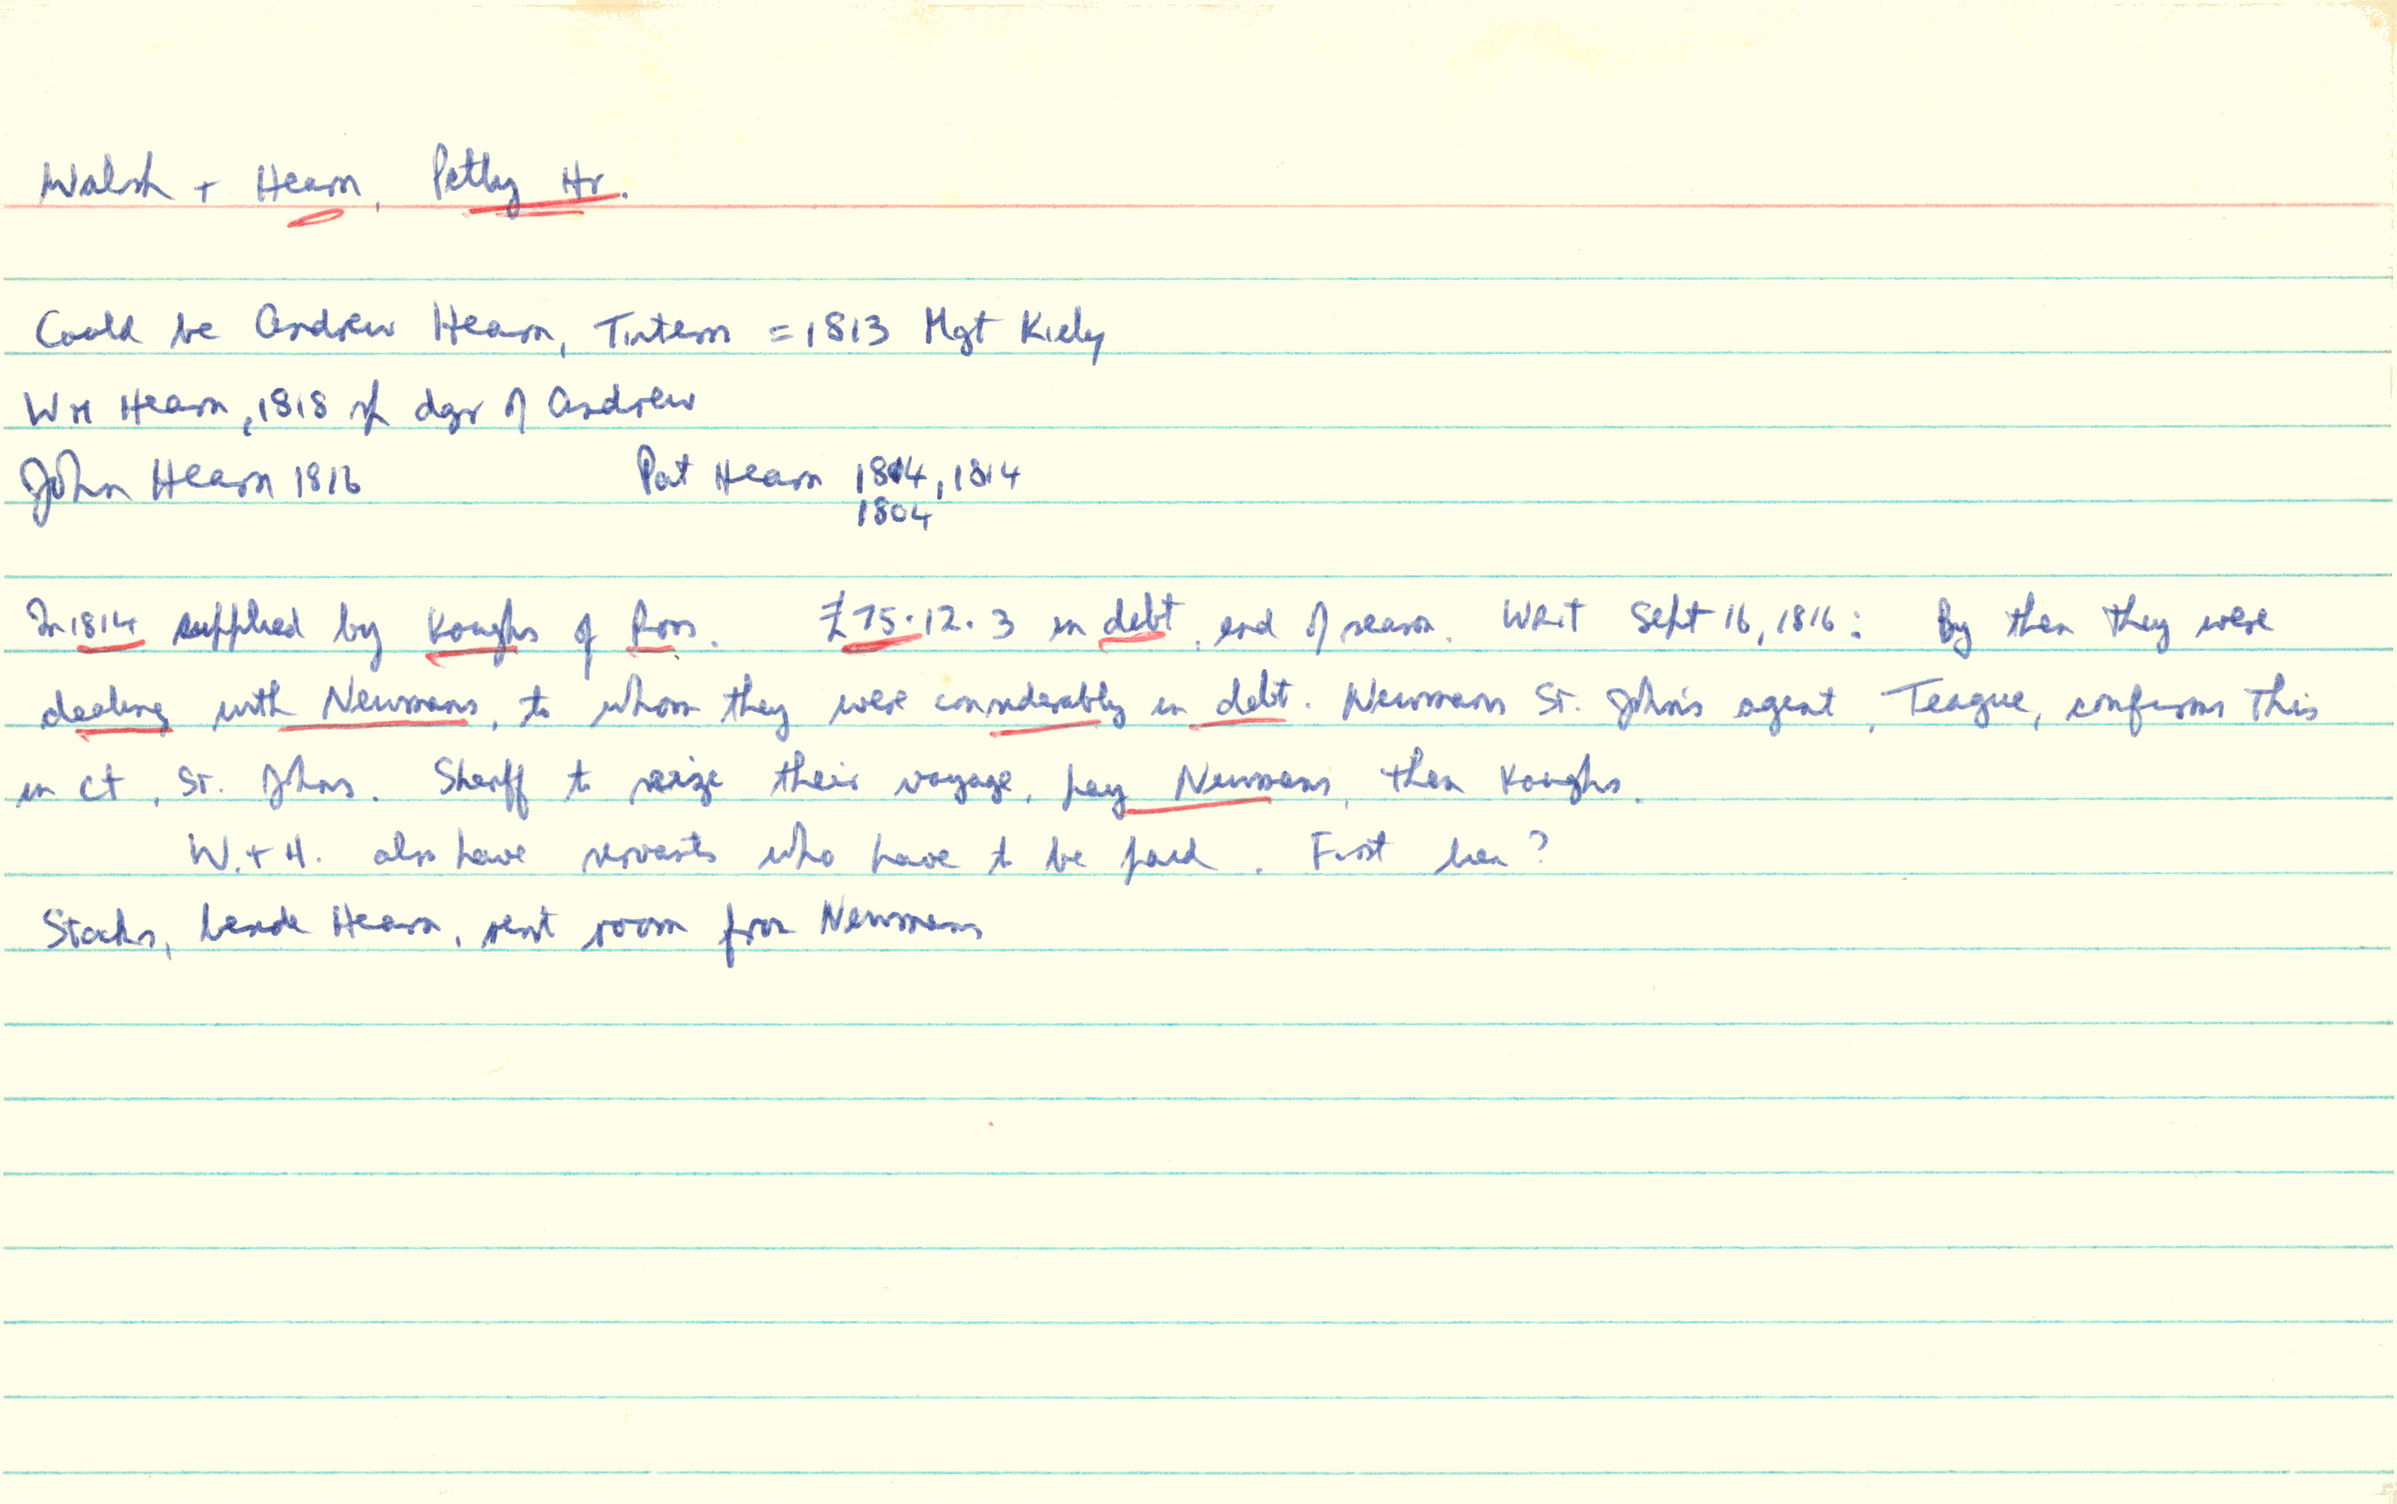 Walsh + Hearn, Petty Hr.
Could be Andrew Hearn, Tintern = 1813 Mgt Kiely
Wm Hearn, 1818 sp dgr of Andrew
John Hearn 1816 Pat Hearn 1814, 1814
1804
In 1814 supplied by Koughs of Ross. £75.12.3 in debt, end of season. Writ Sept 16, 1816: By then they were
dealing with Newmans, to whom they were considerably in debt. Newmans St. John's agent, Teague, confirms this
in ct, St. Johns. Sheriff to seize their voyage, pay Newmans, then Koughs.
W. + H. also have servants who have to be paid. First lien?
Stacks, beside Hearn, rent room from Newmans